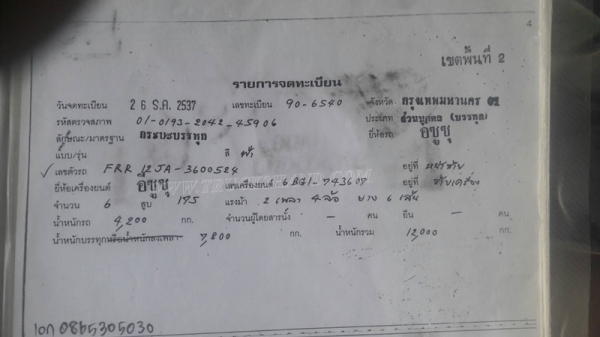 4
เขตพื้นที่ 2
รายการจดทะเบียน
วันจดทะเบียน 26 ธ.ค. 2537 เลขทะเบียน 90-6540 จังหวัด กรุงเทพมหานคร
รหัสตรวจสภาพ 01-0193-2042-45906 ประเภท ส่วนบุคคล (บรรทุก)
ลักษณะ/มาตรฐาน กระบะบรรทุก ยี่ห้อรถ อีซูซุ
แบบ/รุ่น สี ฟ้า
เลขตัวรถ FRR 12JA-3600524 อยู่ที่
ยี่ห้อเครื่องยนต์ อีซูซุ เลขเครื่องยนต์ 6BG1-743607 อยู่ที่
จำนวน 6 สูบ 175 แรงม้า 2 เพลา 4 ล้อ ยาง 6 เส้น
น้ำหนักรถ 4,200 กก. จำนวนผู้โดยสารนั่ง - คน ยืน - คน
น้ำหนักบรรทุกหรือน้ำหนักลงเพลา 7,800 กก. น้ำหนักรวม 12,000 กก.
เอก 0865305030